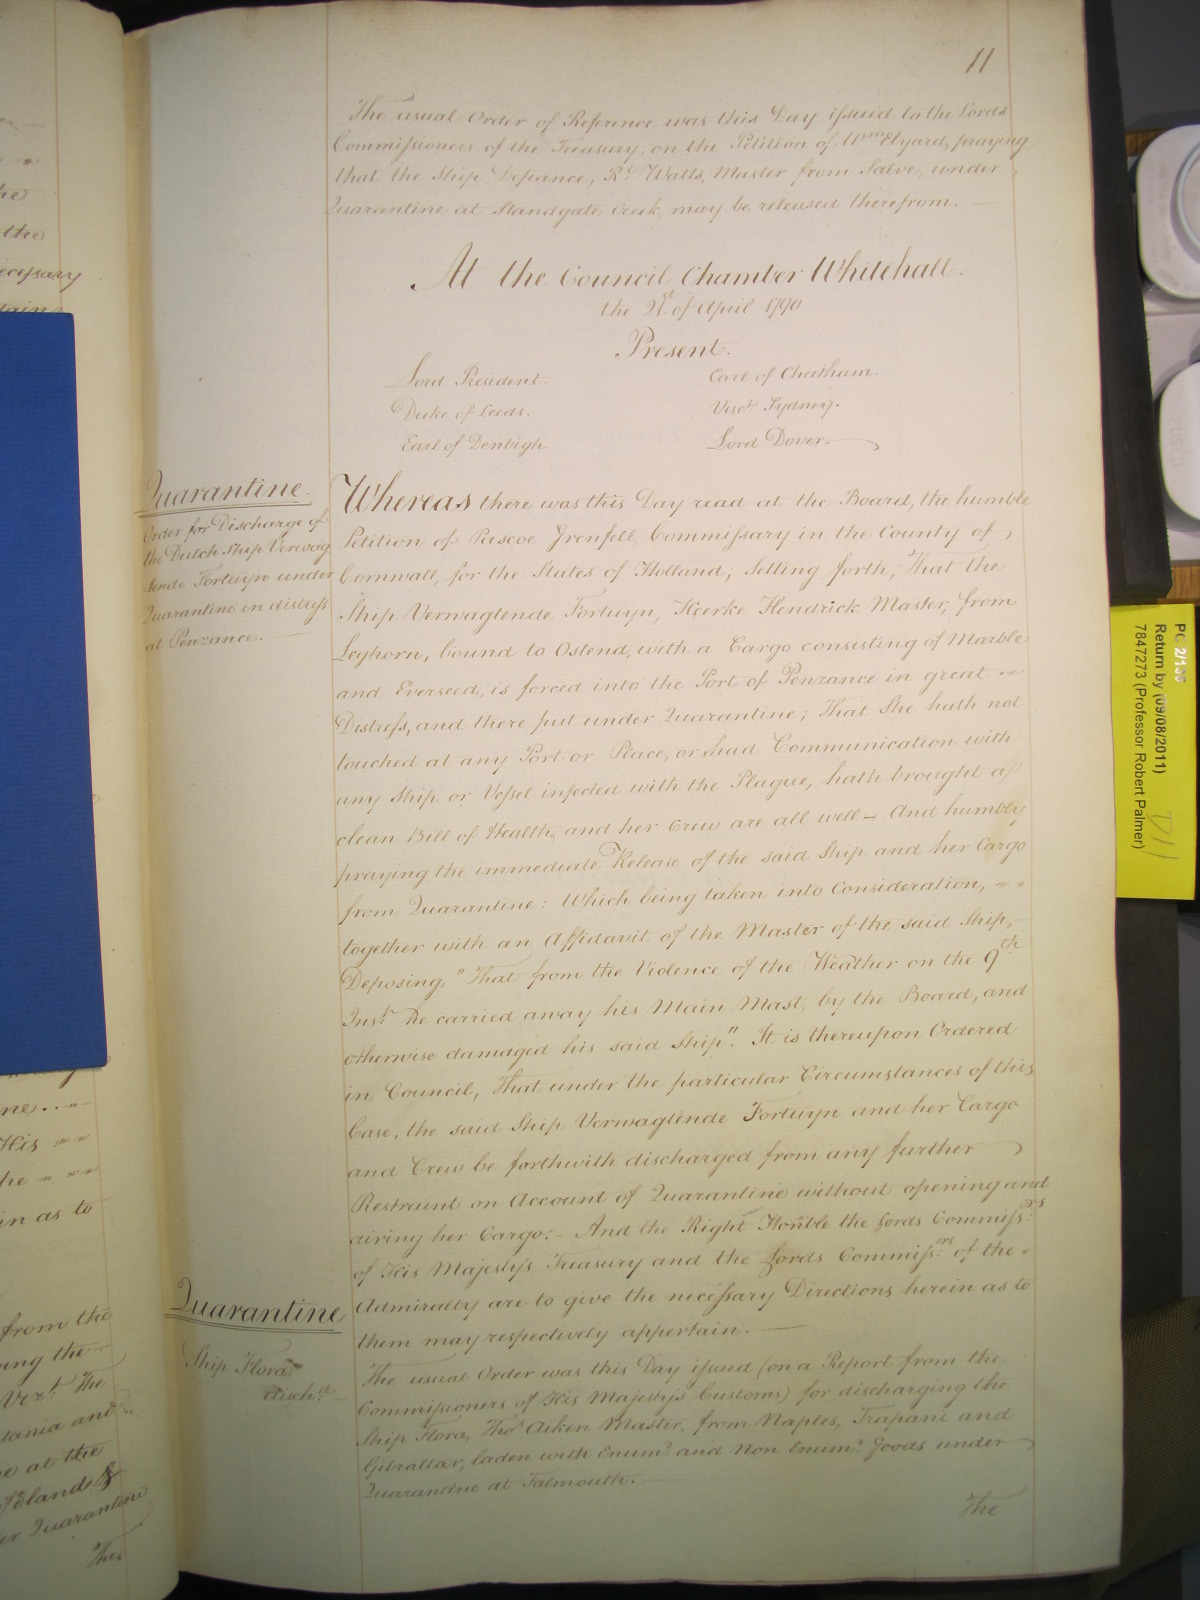 11
The usual Order of Reference was this Day issued to the Lords
Commissioners of the Treasury, on the Petition of Wm. Elyard, praying
that the Ship Defiance, Rt. Watts, Master from Salve, under
Quarantine at Standgate Creek, may be released therefrom.
At the Council Chamber Whitehall.
the 21st of April 1790
Present.
Lord President. Earl of Chatham.
Duke of Leeds. Visct. Sydney.
Earl of Denbigh. Lord Dover.
Quarantine.
Order for Discharge of
the Dutch Ship Verwag
tende Fortuyn under
Quarantine in distress
at Penzance.
Whereas there was this Day read at the Board, the humble
Petition of Pascoe Grenfell, Commissary in the County of
Cornwall, for the States of Holland; Setting forth, That the
Ship Verwagtende Fortuyn, Heerke Hendrick Master, from
Leghorn, bound to Ostend, with a Cargo consisting of Marble
and Everseed, is forced into the Port of Penzance in great
Distress, and there put under Quarantine; That She hath not
touched at any Port or Place, or had Communication with
any Ship or Vessel infected with the Plague, hath brought a
clean Bill of Health, and her Crew are all well – And humbly
praying the immediate Release of the said Ship and her Cargo
from Quarantine: Which being taken into Consideration,
together with an Affidavit of the Master of the said Ship,
Deposing, "That from the Violence of the Weather on the 9th
Inst. he carried away his Main Mast, by the Board, and
otherwise damaged his said Ship". It is thereupon Ordered
in Council, That under the particular Circumstances of this
Case, the said Ship Verwagtende Fortuyn and her Cargo
and Crew be forthwith discharged from any further
Restraint on Account of Quarantine without opening and
airing her Cargo: – And the Right Honble the Lords Commiss:rs
of His Majesty's Treasury and the Lords Commiss:rs of the
Admiralty are to give the necessary Directions herein as to
them may respectively appertain.
Quarantine
Ship Flora
disch:d
The usual Order was this Day issued (on a Report from the
Commissioners of His Majesty's Customs) for discharging the
Ship Flora, Thos. Aiken Master, from Naples, Trapani and
Gibraltar, laden with Enumd. and Non Enumd. Goods under
Quarantine at Falmouth.
The
PC 2/135
Return by (09/08/2011)
7847273 (Professor Robert Palmer)
D1/
he
the
ecessary
tains
ne..
His
he
in as to
from the
ving the
The
tania and
e at the
Islands &
er Quarantine
The